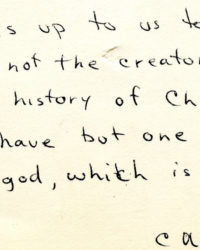 s up to us to
not the creato
history of Ch
have but one
god, which is
ca